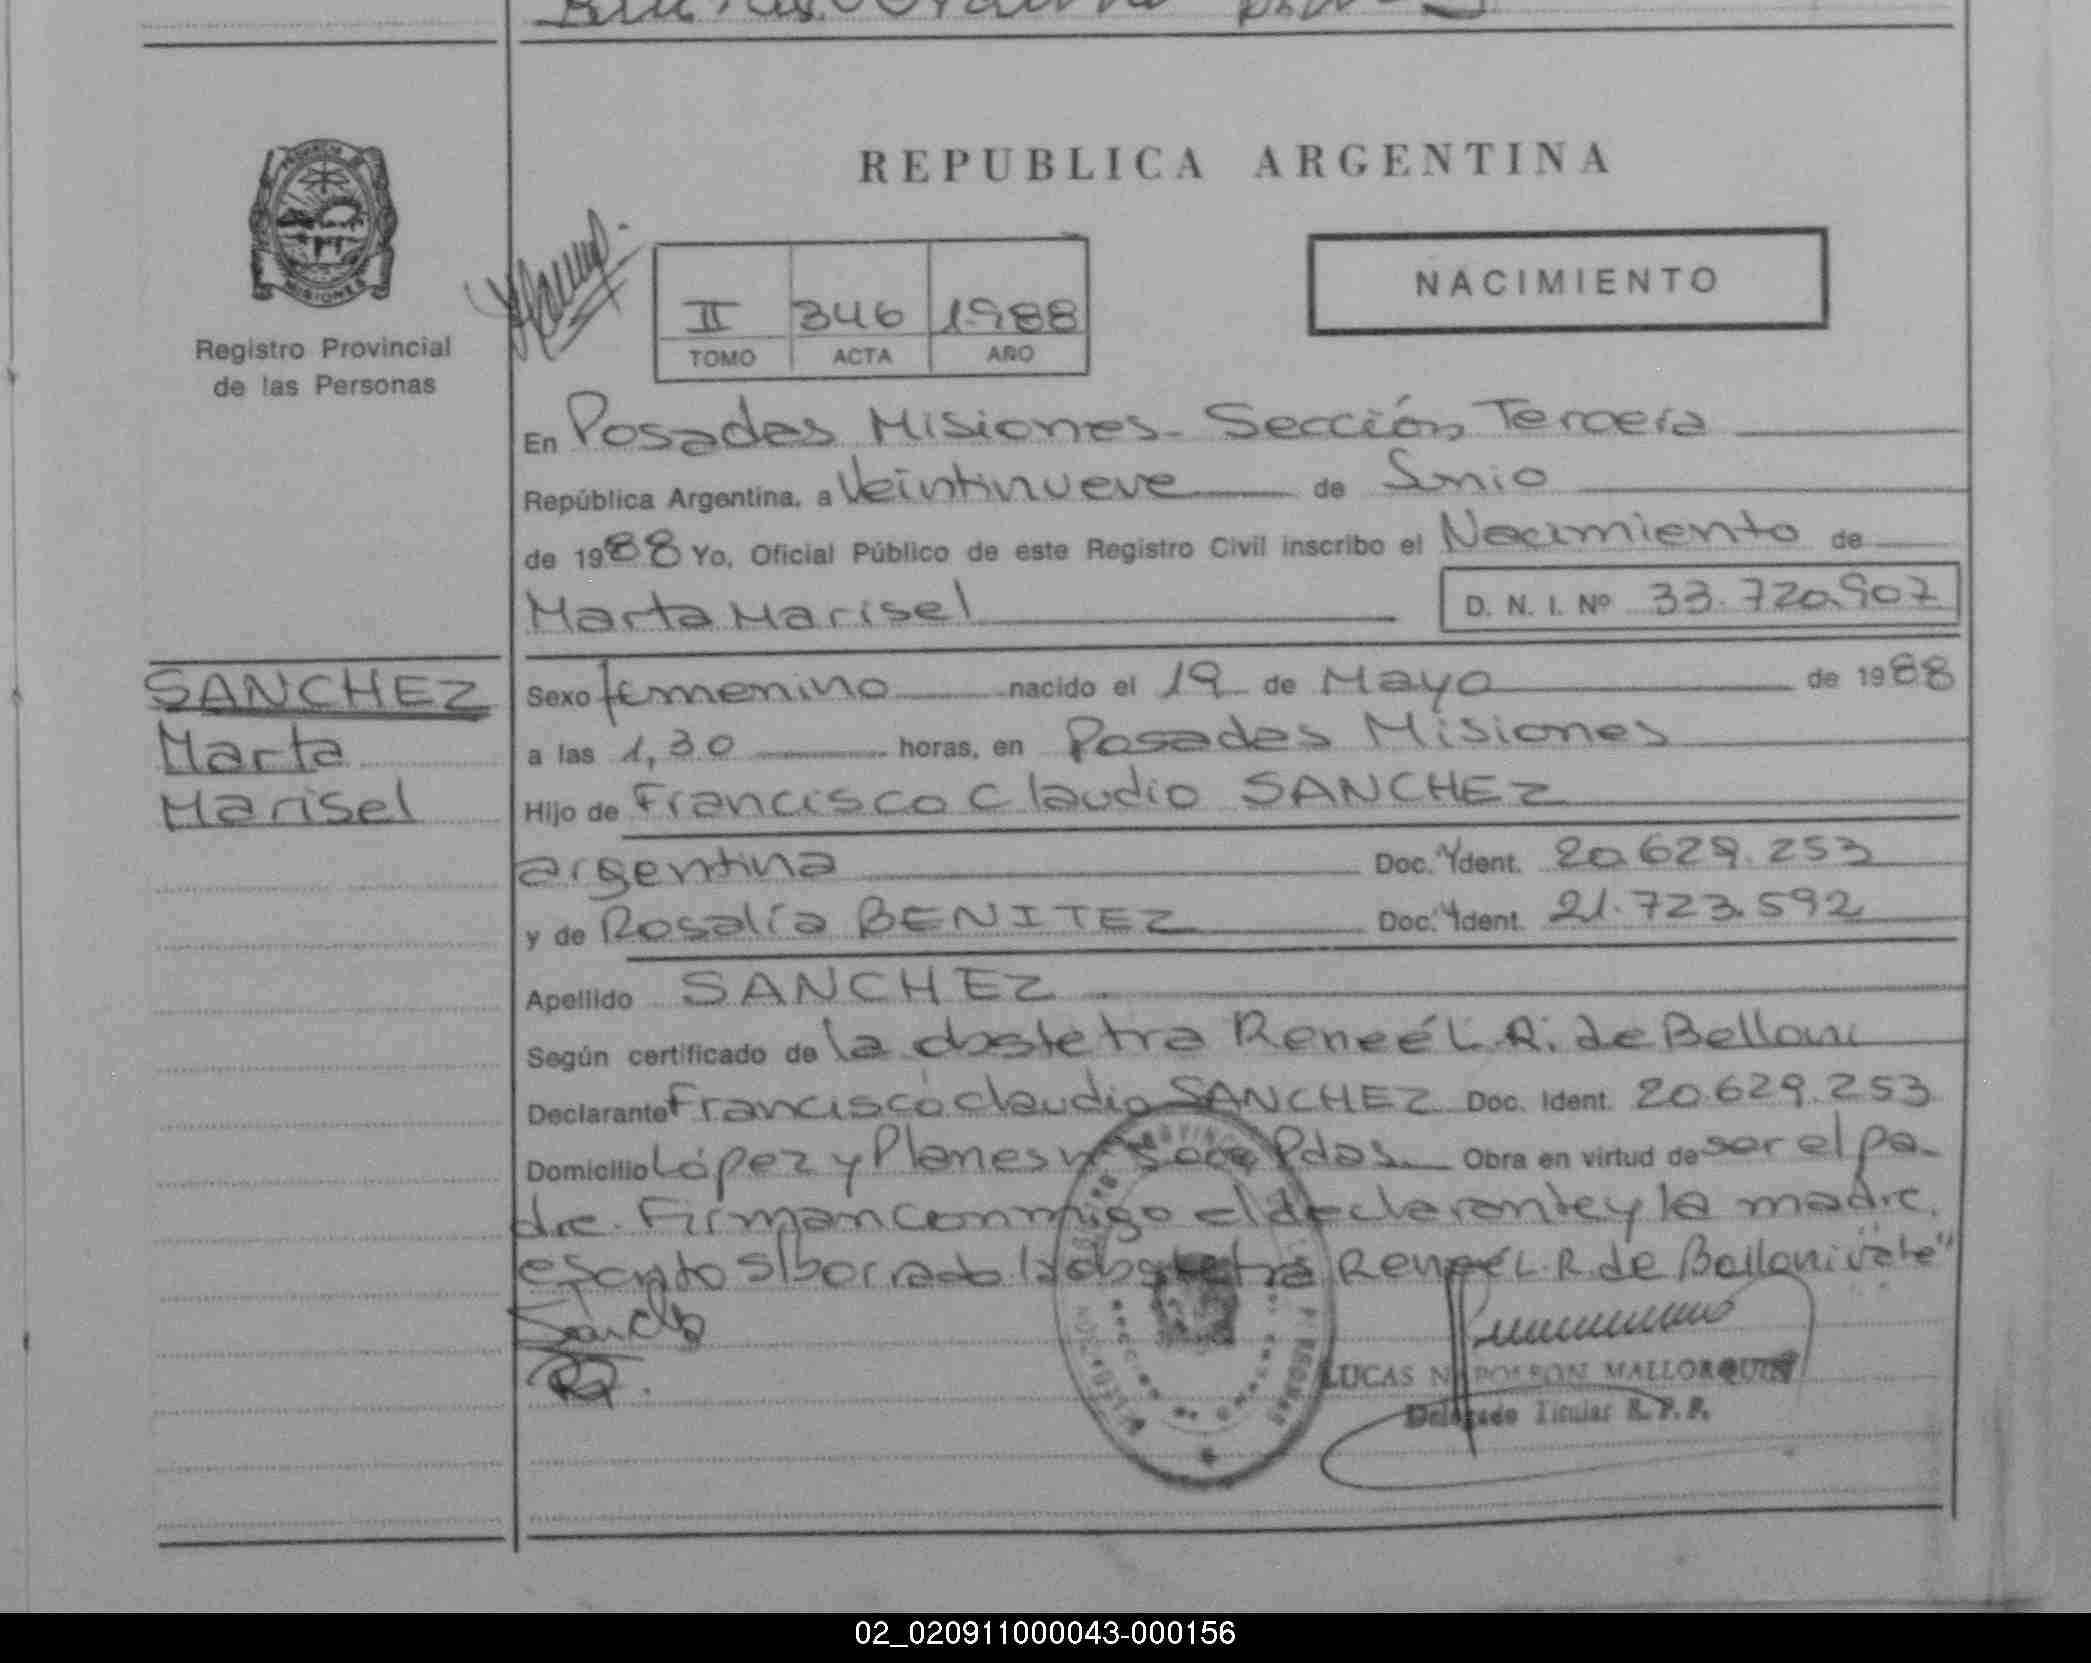 PROVINCIA DE
MISIONES
Registro Provincial
de las Personas
REPUBLICA ARGENTINA
NACIMIENTO
II 346 1988
TOMO ACTA AÑO
En Posadas Misiones - Sección Tercera
República Argentina, a Veintinueve de Junio
de 1988 Yo, Oficial Público de este Registro Civil inscribo el Nacimiento de
Marta Marisel D. N. I. Nº 33.720.907
SANCHEZ
Marta
Marisel
Sexo femenino nacido el 19 de Mayo de 1988
a las 1,30 horas, en Posadas Misiones
Hijo de Francisco Claudio SANCHEZ
argentina Doc. Ydent. 20.629.253
y de Rosalía BENITEZ Doc. Ydent. 21.723.592
Apellido SANCHEZ
Según certificado de la obstetra Reneé L. R. de Belloni
Declarante Francisco Claudio SANCHEZ Doc. Ident. 20.629.253
Domicilio López y Planes Pdas. Obra en virtud de ser el pa-
dre. Firman conmigo el declarante y la madre.
escrito s/borrado la obstetra Reneé L. R. de Belloni "vale"
LUCAS NAPOLEON MALLORQUIN
Delegado Titular R. P. P.
02_020911000043-000156